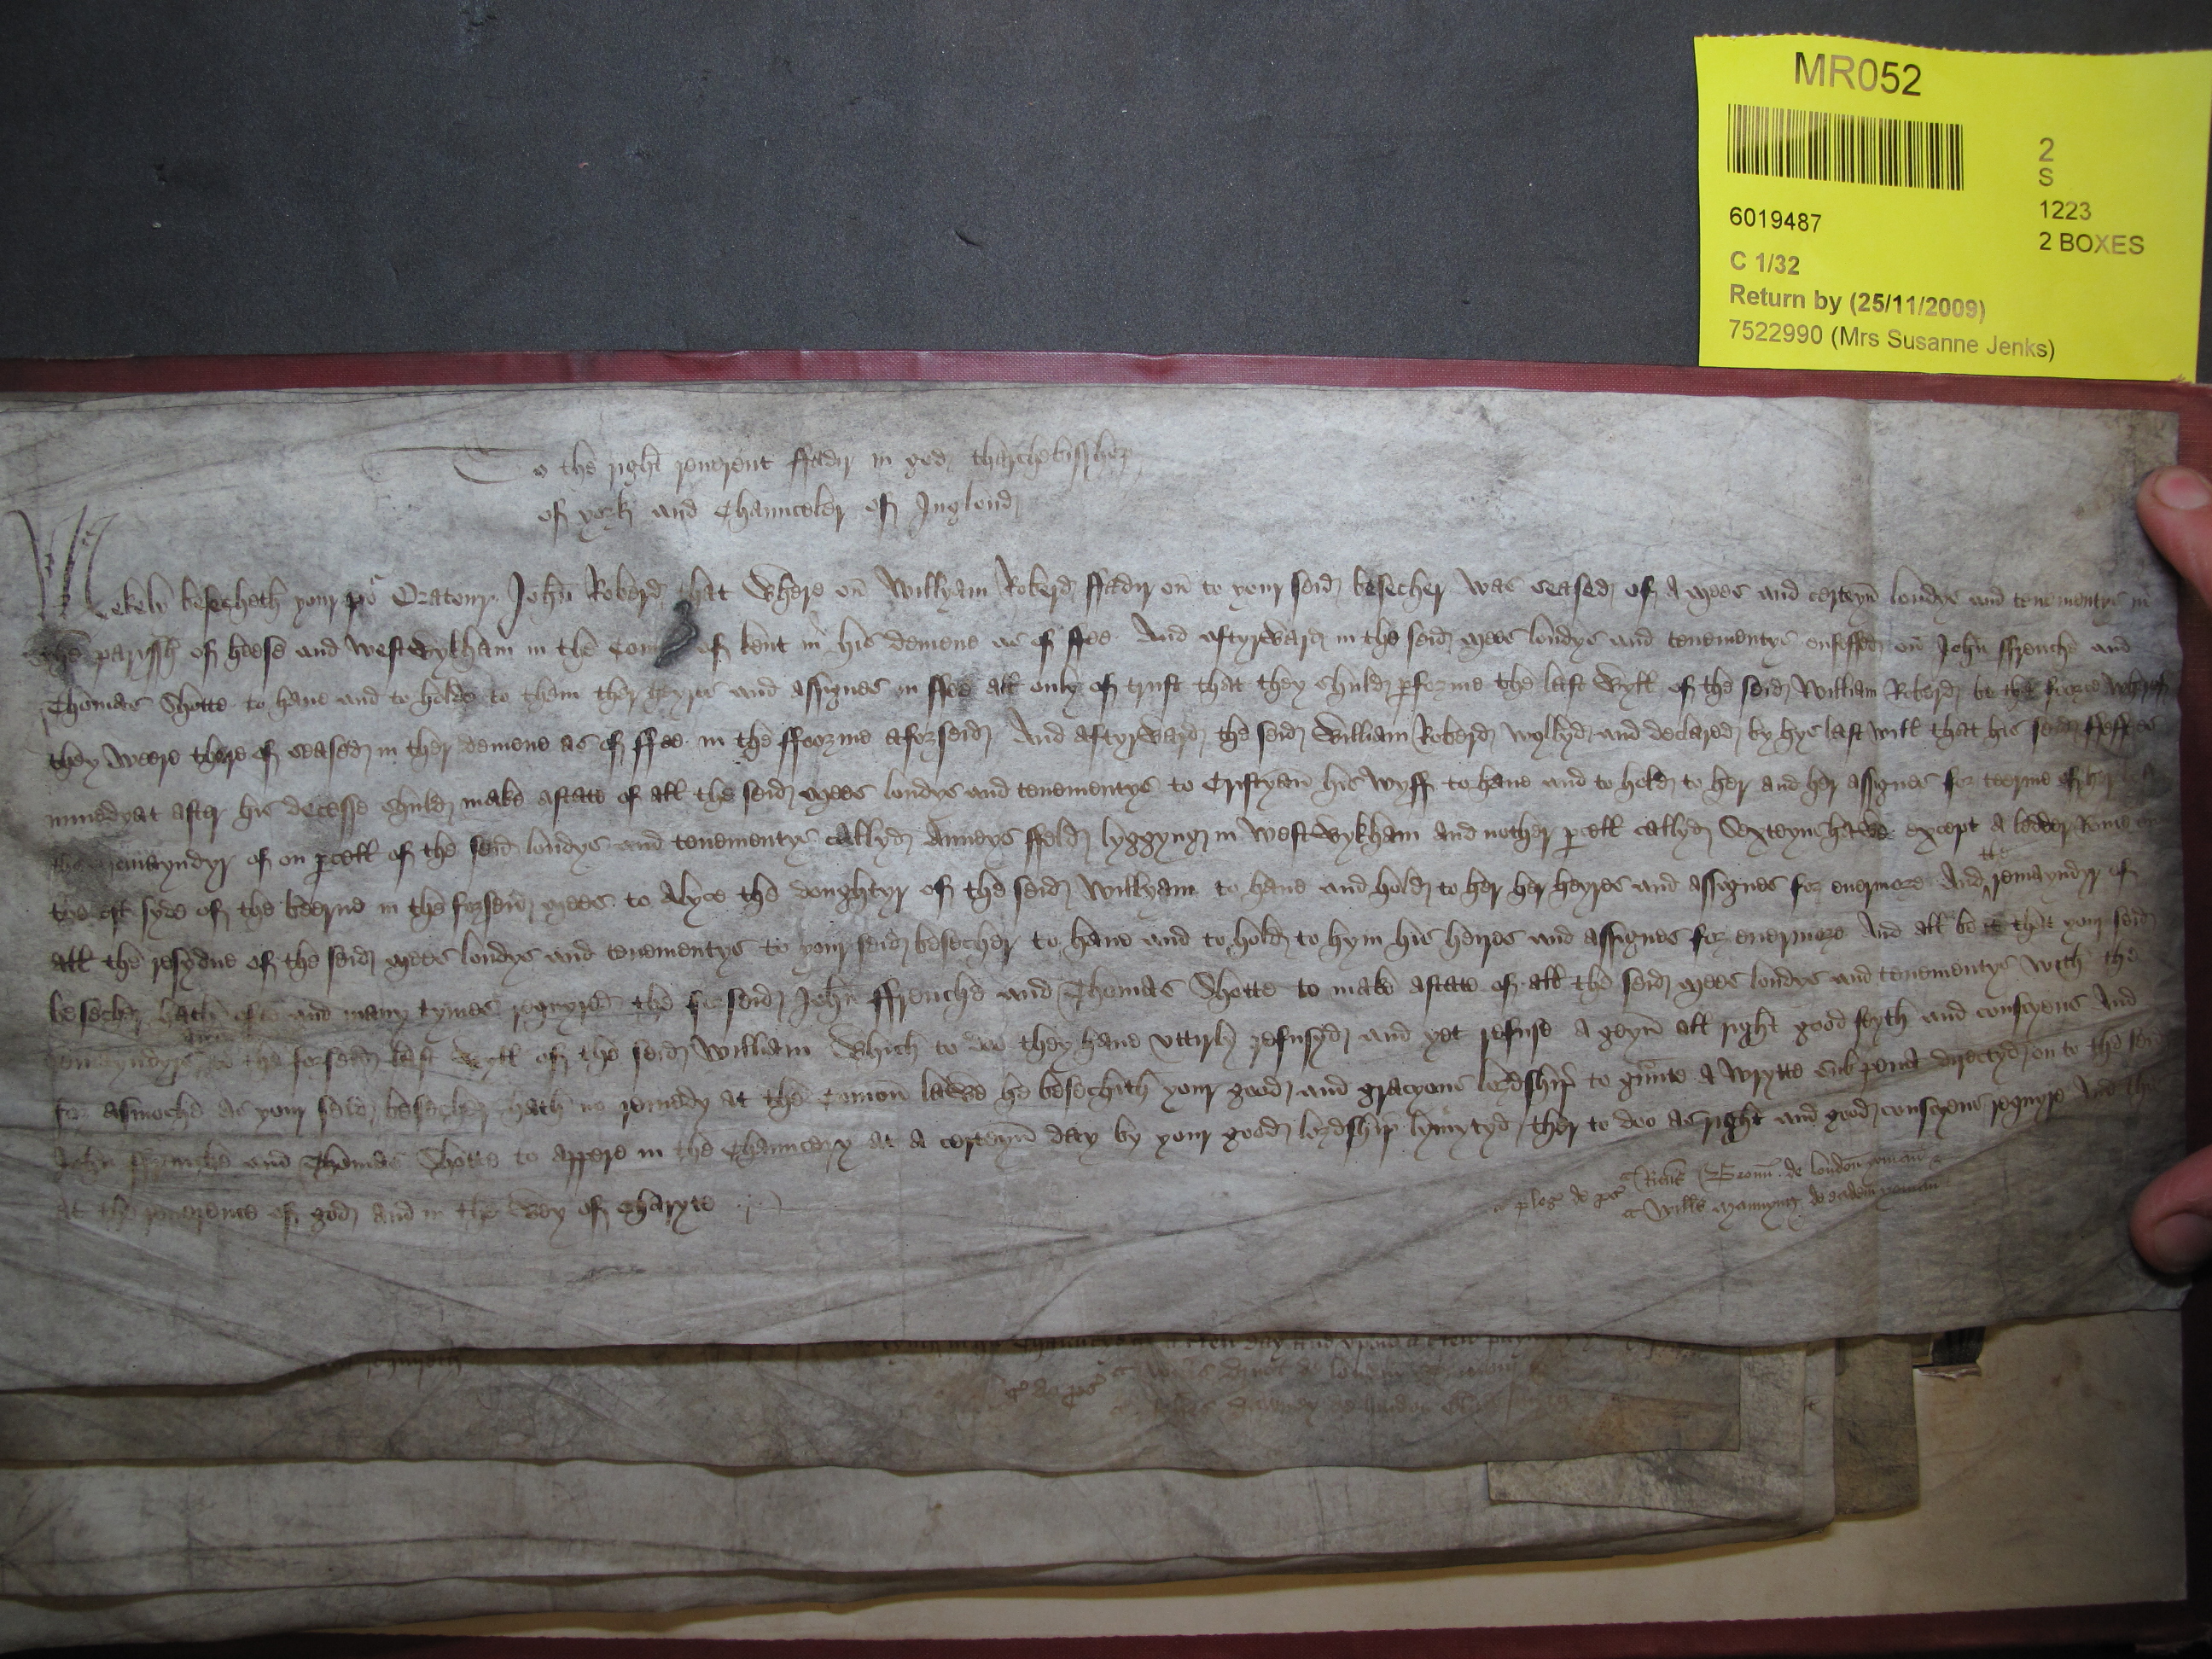 MR052
2
S
6019487
1223
2 BOXES
C 1/32
Return by (25/11/2009)
7522990 (Mrs Susanne Jenks)
To the right reuerent ffadir in god tharchebisshop
of york and Chaunceler of Inglond
Mekely besecheth your por Oratour John Roberd that Where on Willyam Roberd ffadir on to your seid besecher Was seased of A mees and certeyn londys and tenementys in
the parissh of heese and Westwykham in the Com of kent in his demene as of ffee And aftyrward in the seid mees londys and tenementys enfeffed on John ffrenche and
Thomas Shotte to haue and to holde to them ther heyres and assignes in ffee all only of trust that they shuld performe the last Wyll of the seid William Roberd be the force Wherof
they Were there of seased in ther demene as of ffee in the ffoorme aforseid And aftyrward the seid William Roberd Wyllyd and declared by hys last Will that his seid ffeffees
immedyat after his decesse shuld make astate of all the seid mees londys and tenementys to Cristyan his Wyff to haue and to hold to her and her assignes for teerme of her
the remayndyr of on parcell of the seid londys and tenementys callyd Anneys ffeld lyggyng in Westwykham and nother parcell callyd Sexteynshawe except A
the est syde of the beerne in the forseid mees to Alyce the doughtyr of the seid Willyam to haue and hold to her her heyres and assignes for euermore And the remayndyr of
all the resydue of the seid mees londys and tenementys to your seid besecher to haue and to hold to hym his heires and assignes for euermore And all be it that your seid
besecher hath ofte and many tymes requyred the forseid John ffrenche and Thomas Shotte to make astate of all the seid mees londys and tenementys With the
remayndyrs to the forseid last Wyll of the seid William Which to doo they haue vttirly refusyd and yet refuse A geyn all right good feyth and consyens And
for asmoche as your seid besecher hath no remedy at the Comon lawe he besechith your good and gracyous lordship to graunte A Wrytte sub pena directyd on to the seid
John ffrenche and Thomas Shotte to appere in the Chauncery at A certeyn day by your good lordship lymytyd ther to doo as right and good consyens requyre And this
at the reuerence of god and in the Wey of charyte
pleg de pros Ricus Broun de london yoman
Wills Mannyng de eadem yoman